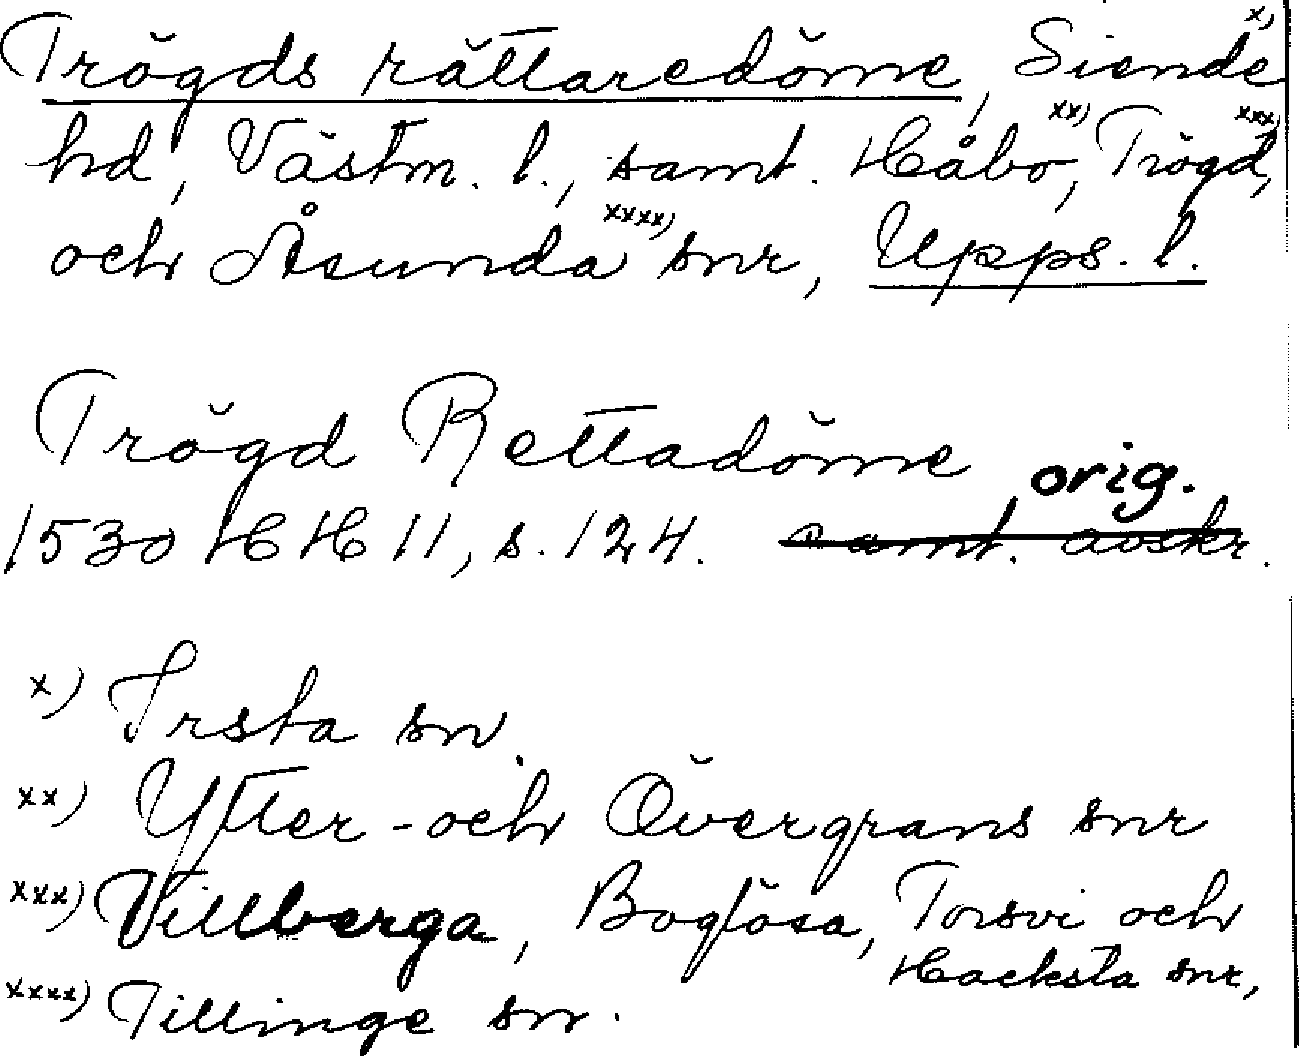 Trögds rättaredöme, Siende x)
hd, Västm. l., samt. Håbo xx), Trögd xxx),
och Åsunda xxxx) snr, Upps. l.
Trögd Rettadöme
orig.
1530 HH 11, s. 124. samt. avskr.
x) Irsta sn.
xx) Ytter- och Övergrans snr
xxx) Villberga, Boglösa, Torsvi och
Hacksta snr,
xxxx) Tillinge sn.